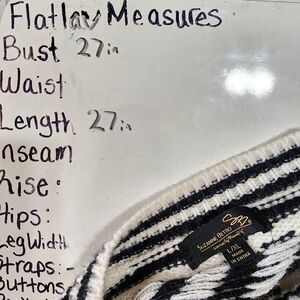 Flatlay Measures
Bust 27in
Waist
Length 27in
nseam
Rise:
Hips:
LegWidth
Straps:-
Buttons
SUZANNE BETRO
L/XL
MADE
IN CHINA